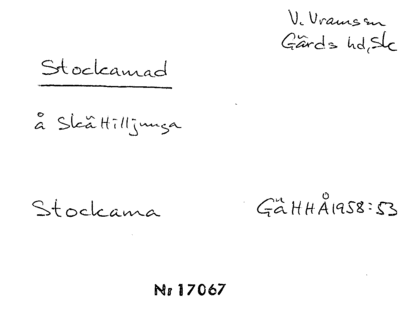 V. Vramssn
Gärds hd, Sk
Stockamad
å Skättilljunga
Stockama
GäHHÅ1958:53
Nr 17067